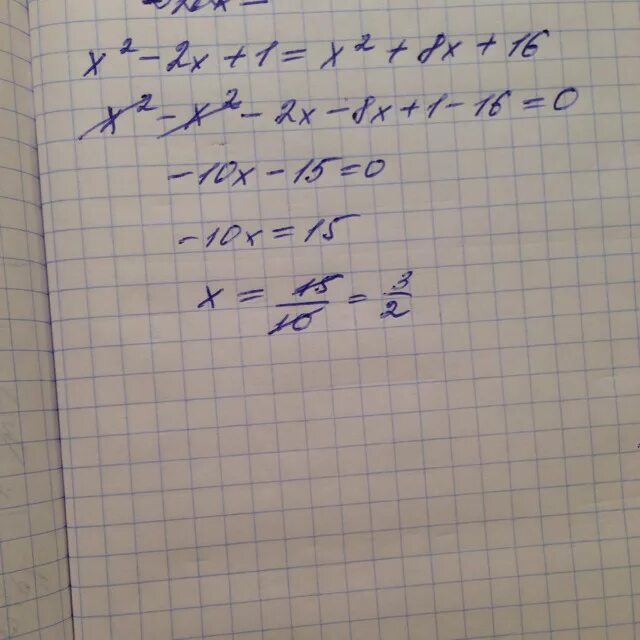 x² - 2x + 1 = x² + 8x + 16
x² - x² - 2x - 8x + 1 - 16 = 0
-10x - 15 = 0
-10x = 15
x = 15/10 = 3/2